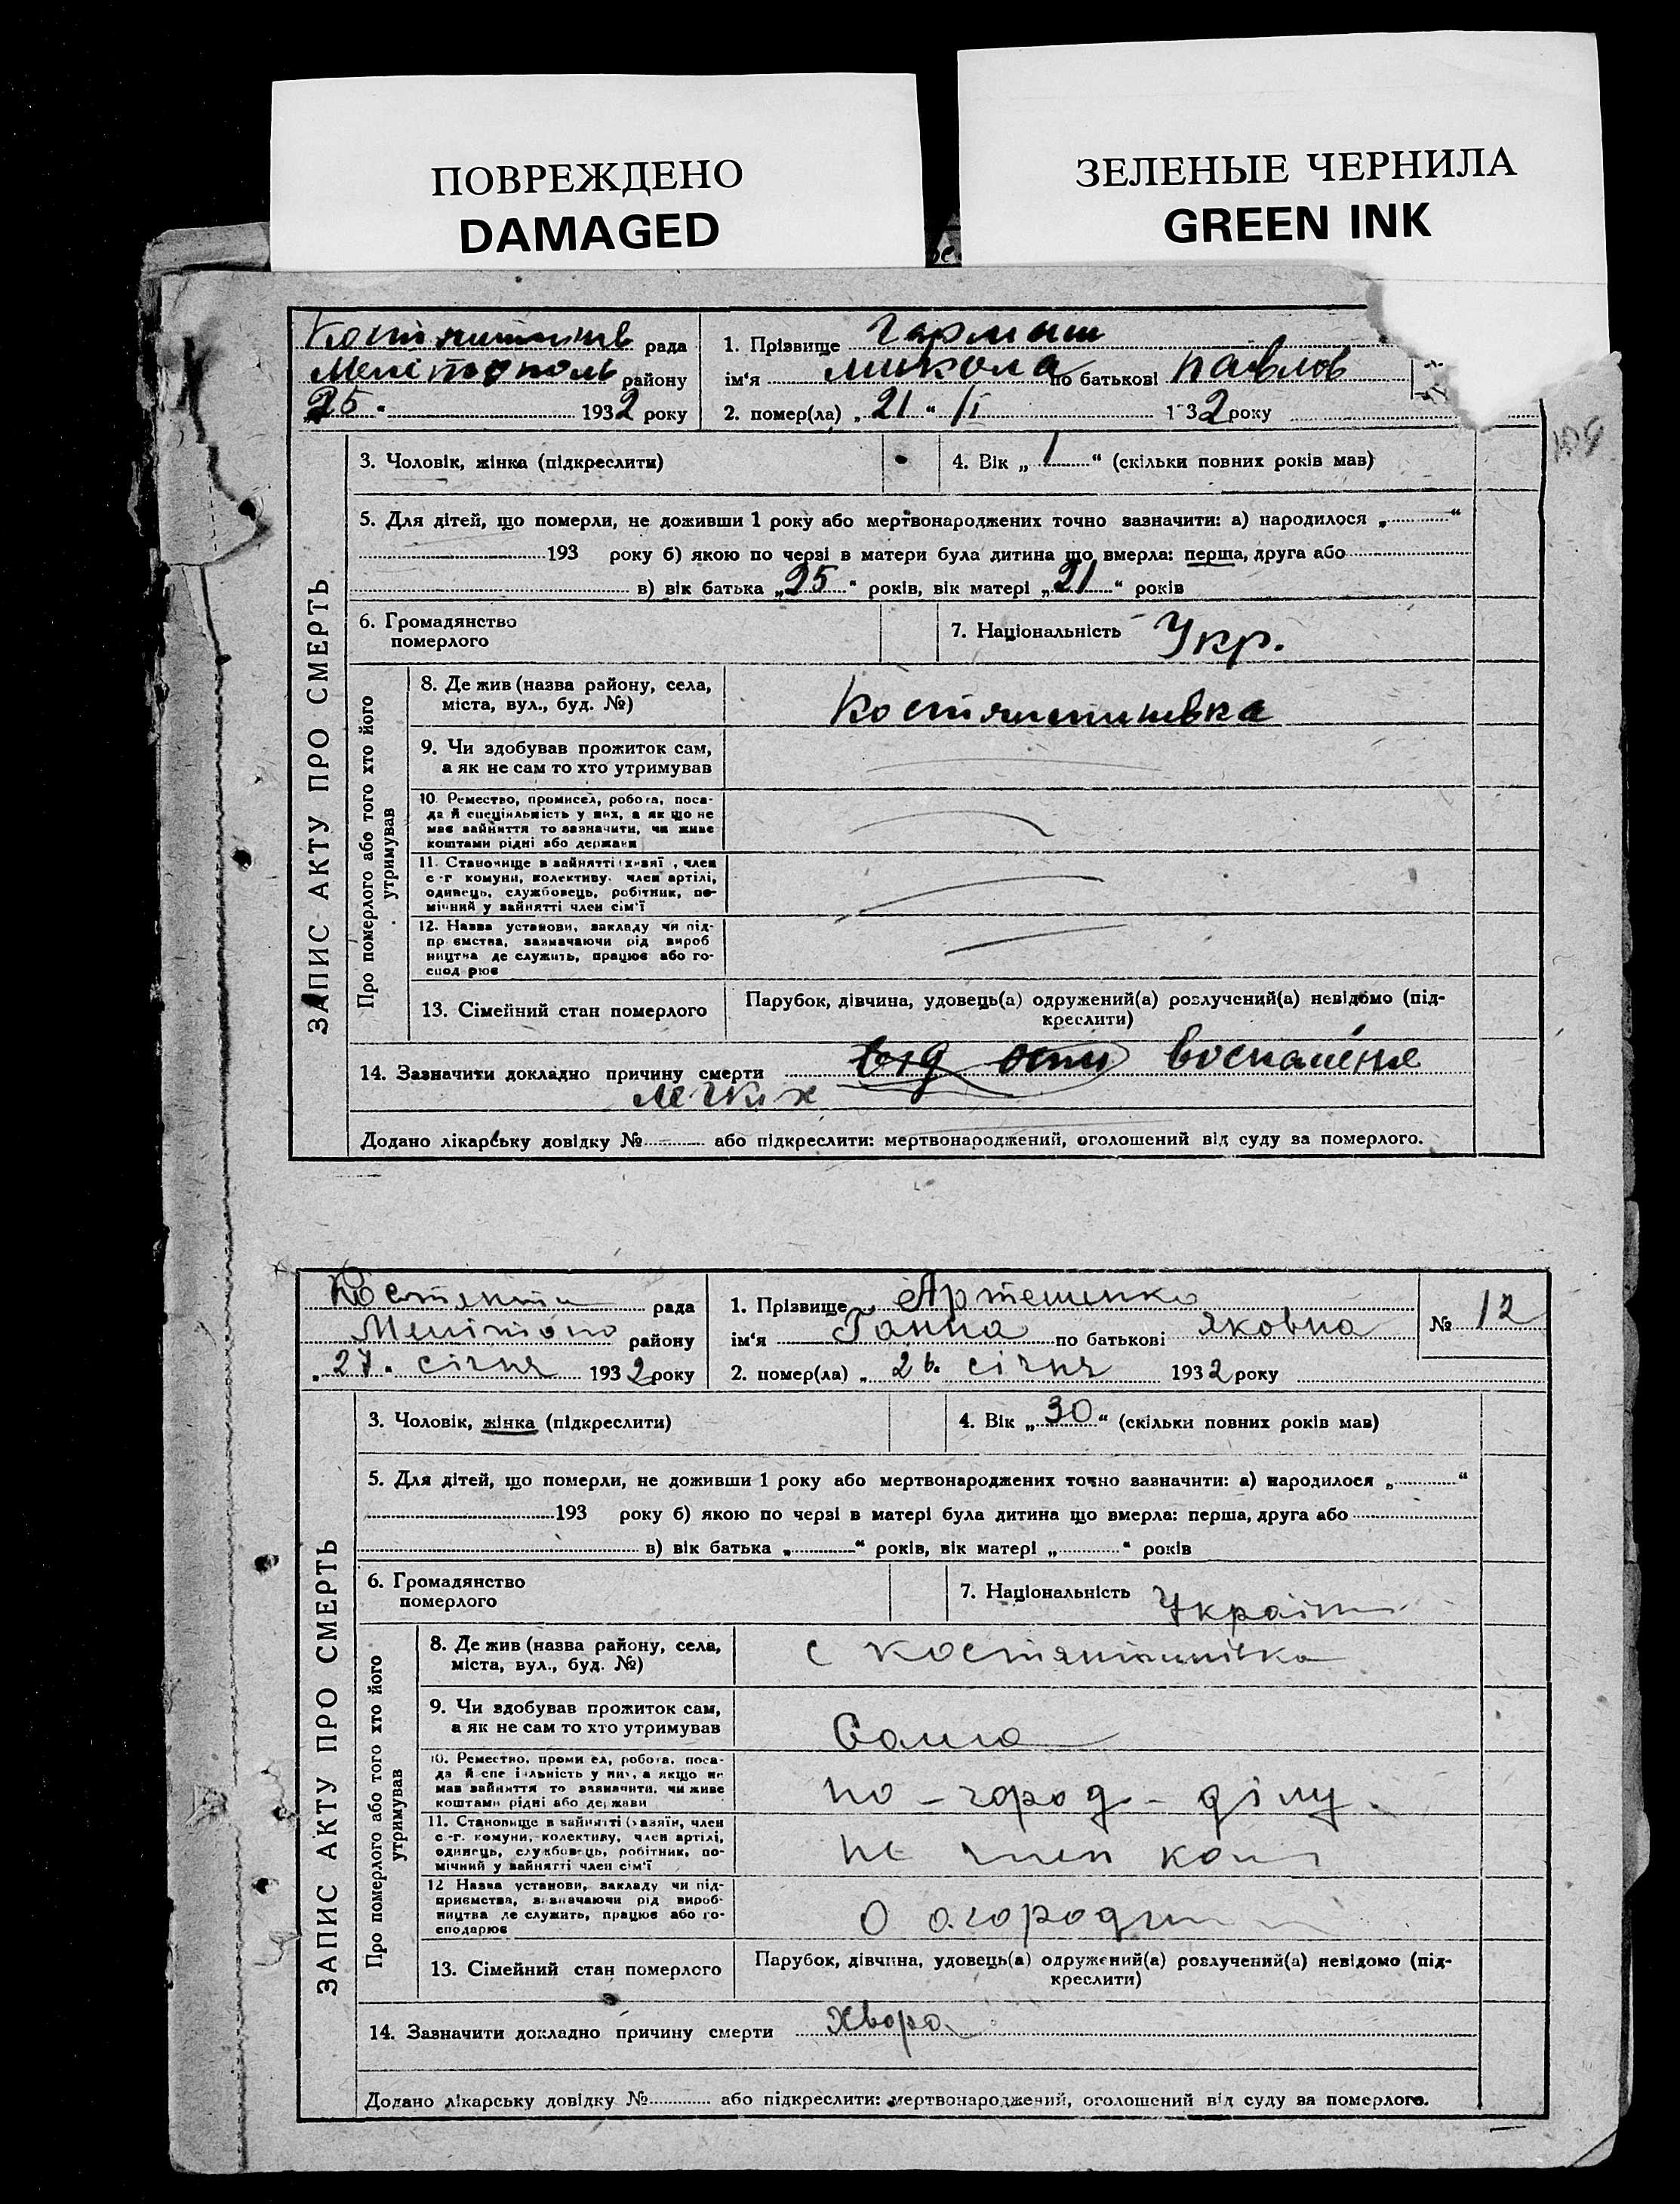 ПОВРЕЖДЕНО
DAMAGED
ЗЕЛЕНЫЕ ЧЕРНИЛА
GREEN INK
ЗАПИС АКТУ ПРО СМЕРТЬ
Костянтинів рада
Мелітополь району
25 " 1932 року
1. Прізвище Гармаш
ім'я Микола по батькові Павлов
2. помер(ла) „ 21 " /I 1932 року
3. Чоловік, жінка (підкреслити)
4. Вік „ 1 " (скільки повних років мав)
5. Для дітей, що померли, не доживши 1 року або мертвонароджених точно зазначити: а) народилося „ "
193 року б) якою по черзі в матери була дитина що вмерла: перша, друга або
в) вік батька „ 25 " років, вік матері „ 21 " років
6. Громадянство
померлого
7. Національність Укр.
Про померлого або того хто його
утримував
8. Де жив (назва району, села,
міста, вул., буд. №)
Костянтинівка
9. Чи здобував прожиток сам,
а як не сам то хто утримував
10. Ремество, промисел, робота, поса-
да й спеціяльність у них, а як що не
має зайняття то зазначити, чи живе
коштами рідні або держави
11. Становище в зайнятті (хазяї, член
с.-г. комуни, колективу, член артілі,
одинець, службовець, робітник, по-
мічний у зайнятті член сім'ї
12. Назва установи, закладу чи під-
приємства, зазначаючи рід вироб
ництва де служить, працює або го-
сподарює
13. Сімейний стан померлого
Парубок, дівчина, удовець(а) одружений(а) розлучений(а) невідомо (під-
креслити)
14. Зазначити докладно причину смерти від оспи воспаленіе
легких
Додано лікарську довідку № або підкреслити: мертвонароджений, оголошений від суду за померлого.
ЗАПИС АКТУ ПРО СМЕРТЬ
Костянти рада
Мелітопо району
„ 27 " січня 1932 року
1. Прізвище Артеменко
ім'я Ганна по батькові Яковна
№ 12
2. помер(ла) „ 26. січня 1932 року
3. Чоловік, жінка (підкреслити)
4. Вік „ 30 " (скільки повних років мав)
5. Для дітей, що померли, не доживши 1 року або мертвонароджених точно зазначити: а) народилося „ "
193 року б) якою по черзі в матері була дитина що вмерла: перша, друга або
в) вік батька „ " років, вік матері „ " років
6. Громадянство
померлого
7. Національність Україн
Про померлого або того хто його
утримував
8. Де жив (назва району, села,
міста, вул., буд. №)
с Костянтинівка
9. Чи здобував прожиток сам,
а як не сам то хто утримував
Сама
10. Ремество, промисел, робота, поса-
да й спеціяльність у них, а якщо не
має зайняття то зазначити, чи живе
коштами рідні або держави
по-город-ділу.
11. Становище в зайнятті (хазяїн, член
с.-г. комуни, колективу, член артілі,
одинець, службовець, робітник, по-
мічний у зайнятті член сім'ї
не член
12 Назва установи, закладу чи під-
приємства, зазначаючи рід вироб-
ництва де служить, працює або го-
сподарює
13. Сімейний стан померлого
Парубок, дівчина, удовець(а) одружений(а) розлучений(а) невідомо (під-
креслити)
14. Зазначити докладно причину смерти Хвора
Додано лікарську довідку № або підкреслити: мертвонароджений, оголошений від суду за померлого.